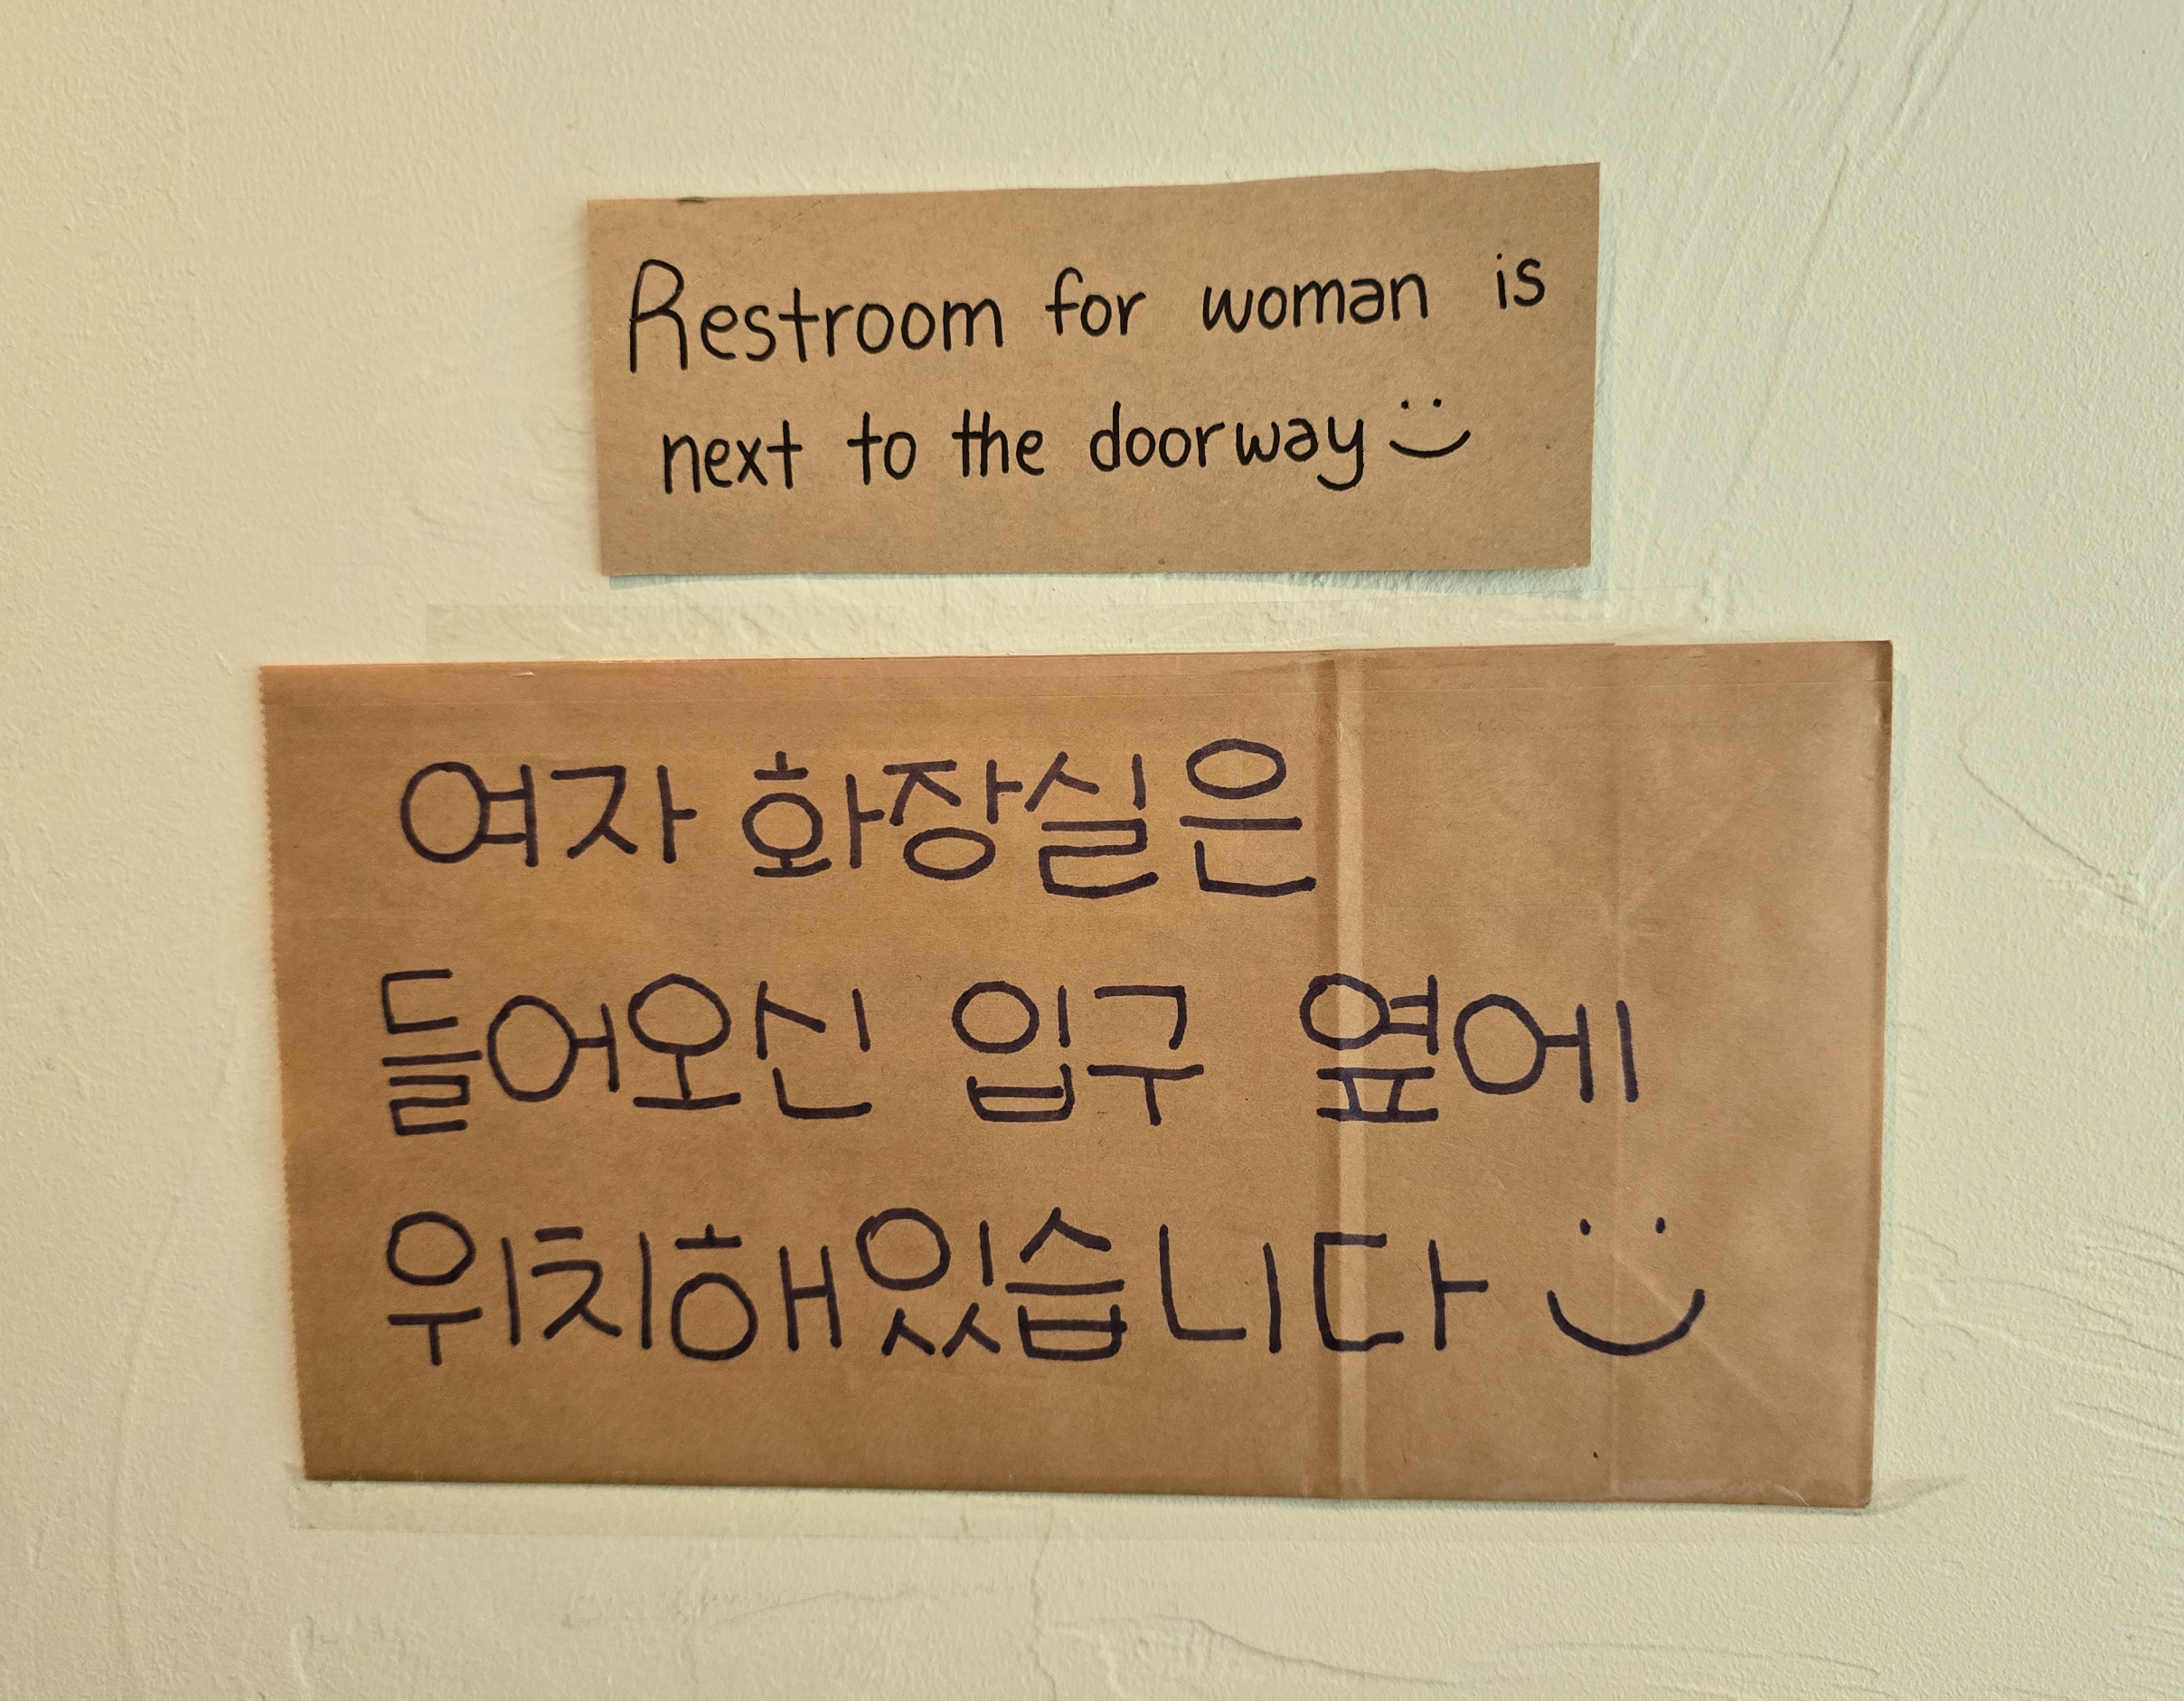 Restroom for woman is
next to the doorway
여자 화장실은
들어오신 입구 옆에
위치해있습니다